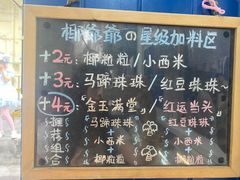 椰爷爷の星级加料区
+2元: 椰粒粒/小西米
+3元: 马蹄珠珠/红豆珠珠~
+4元: 金玉满堂, 红运当头
推荐组合
马蹄珠珠 + 小西米 + 椰粒粒
红豆珠珠 + 小西米 + 椰粒粒